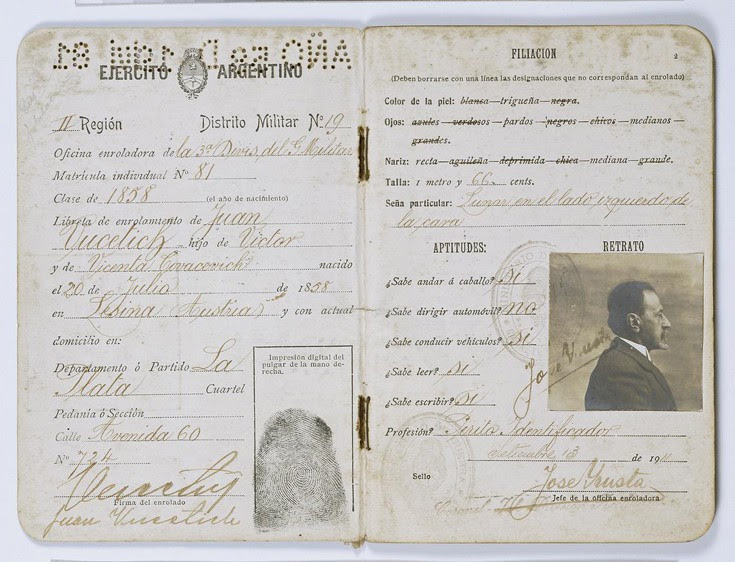 EJERCITO ARGENTINO
11 Región Distrito Militar Nº 19
Oficina enroladora de la 3ª Divis. del G. Militar
Matrícula individual Nº 81
Clase de 1858 (el año de nacimiento)
Libreta de enrolamiento de Juan
Vucetich hijo de Victor
y de Vicenta Covacevich nacido
el 20 de Julio de 1858
en Lesina Austria y con actual
domicilio en:
Departamento ó Partido La
Plata Cuartel
Pedanía ó Sección
Calle Avenida 60
Nº 724
Impresión digital del
pulgar de la mano de-
recha.
Firma del enrolado
Juan Vucetich
FILIACION
2
(Deben borrarse con una línea las designaciones que no correspondan al enrolado)
Color de la piel: blanca—trigueña—negra.
Ojos: azules—verdosos—pardos—negros—chicos—medianos—
grandes.
Nariz: recta—aguileña—deprimida—chica—mediana—grande.
Talla: 1 metro y 66 cents.
Seña particular: Lunar en el lado izquierdo de
la cara
APTITUDES:
¿Sabe andar á caballo? Si
¿Sabe dirigir automóvil? no
¿Sabe conducir vehículos? Si
¿Sabe leer? Si
¿Sabe escribir? Si
RETRATO
Profesión? Perito Identificador
Setiembre 13 de 1911
Sello
Jefe de la oficina enroladora